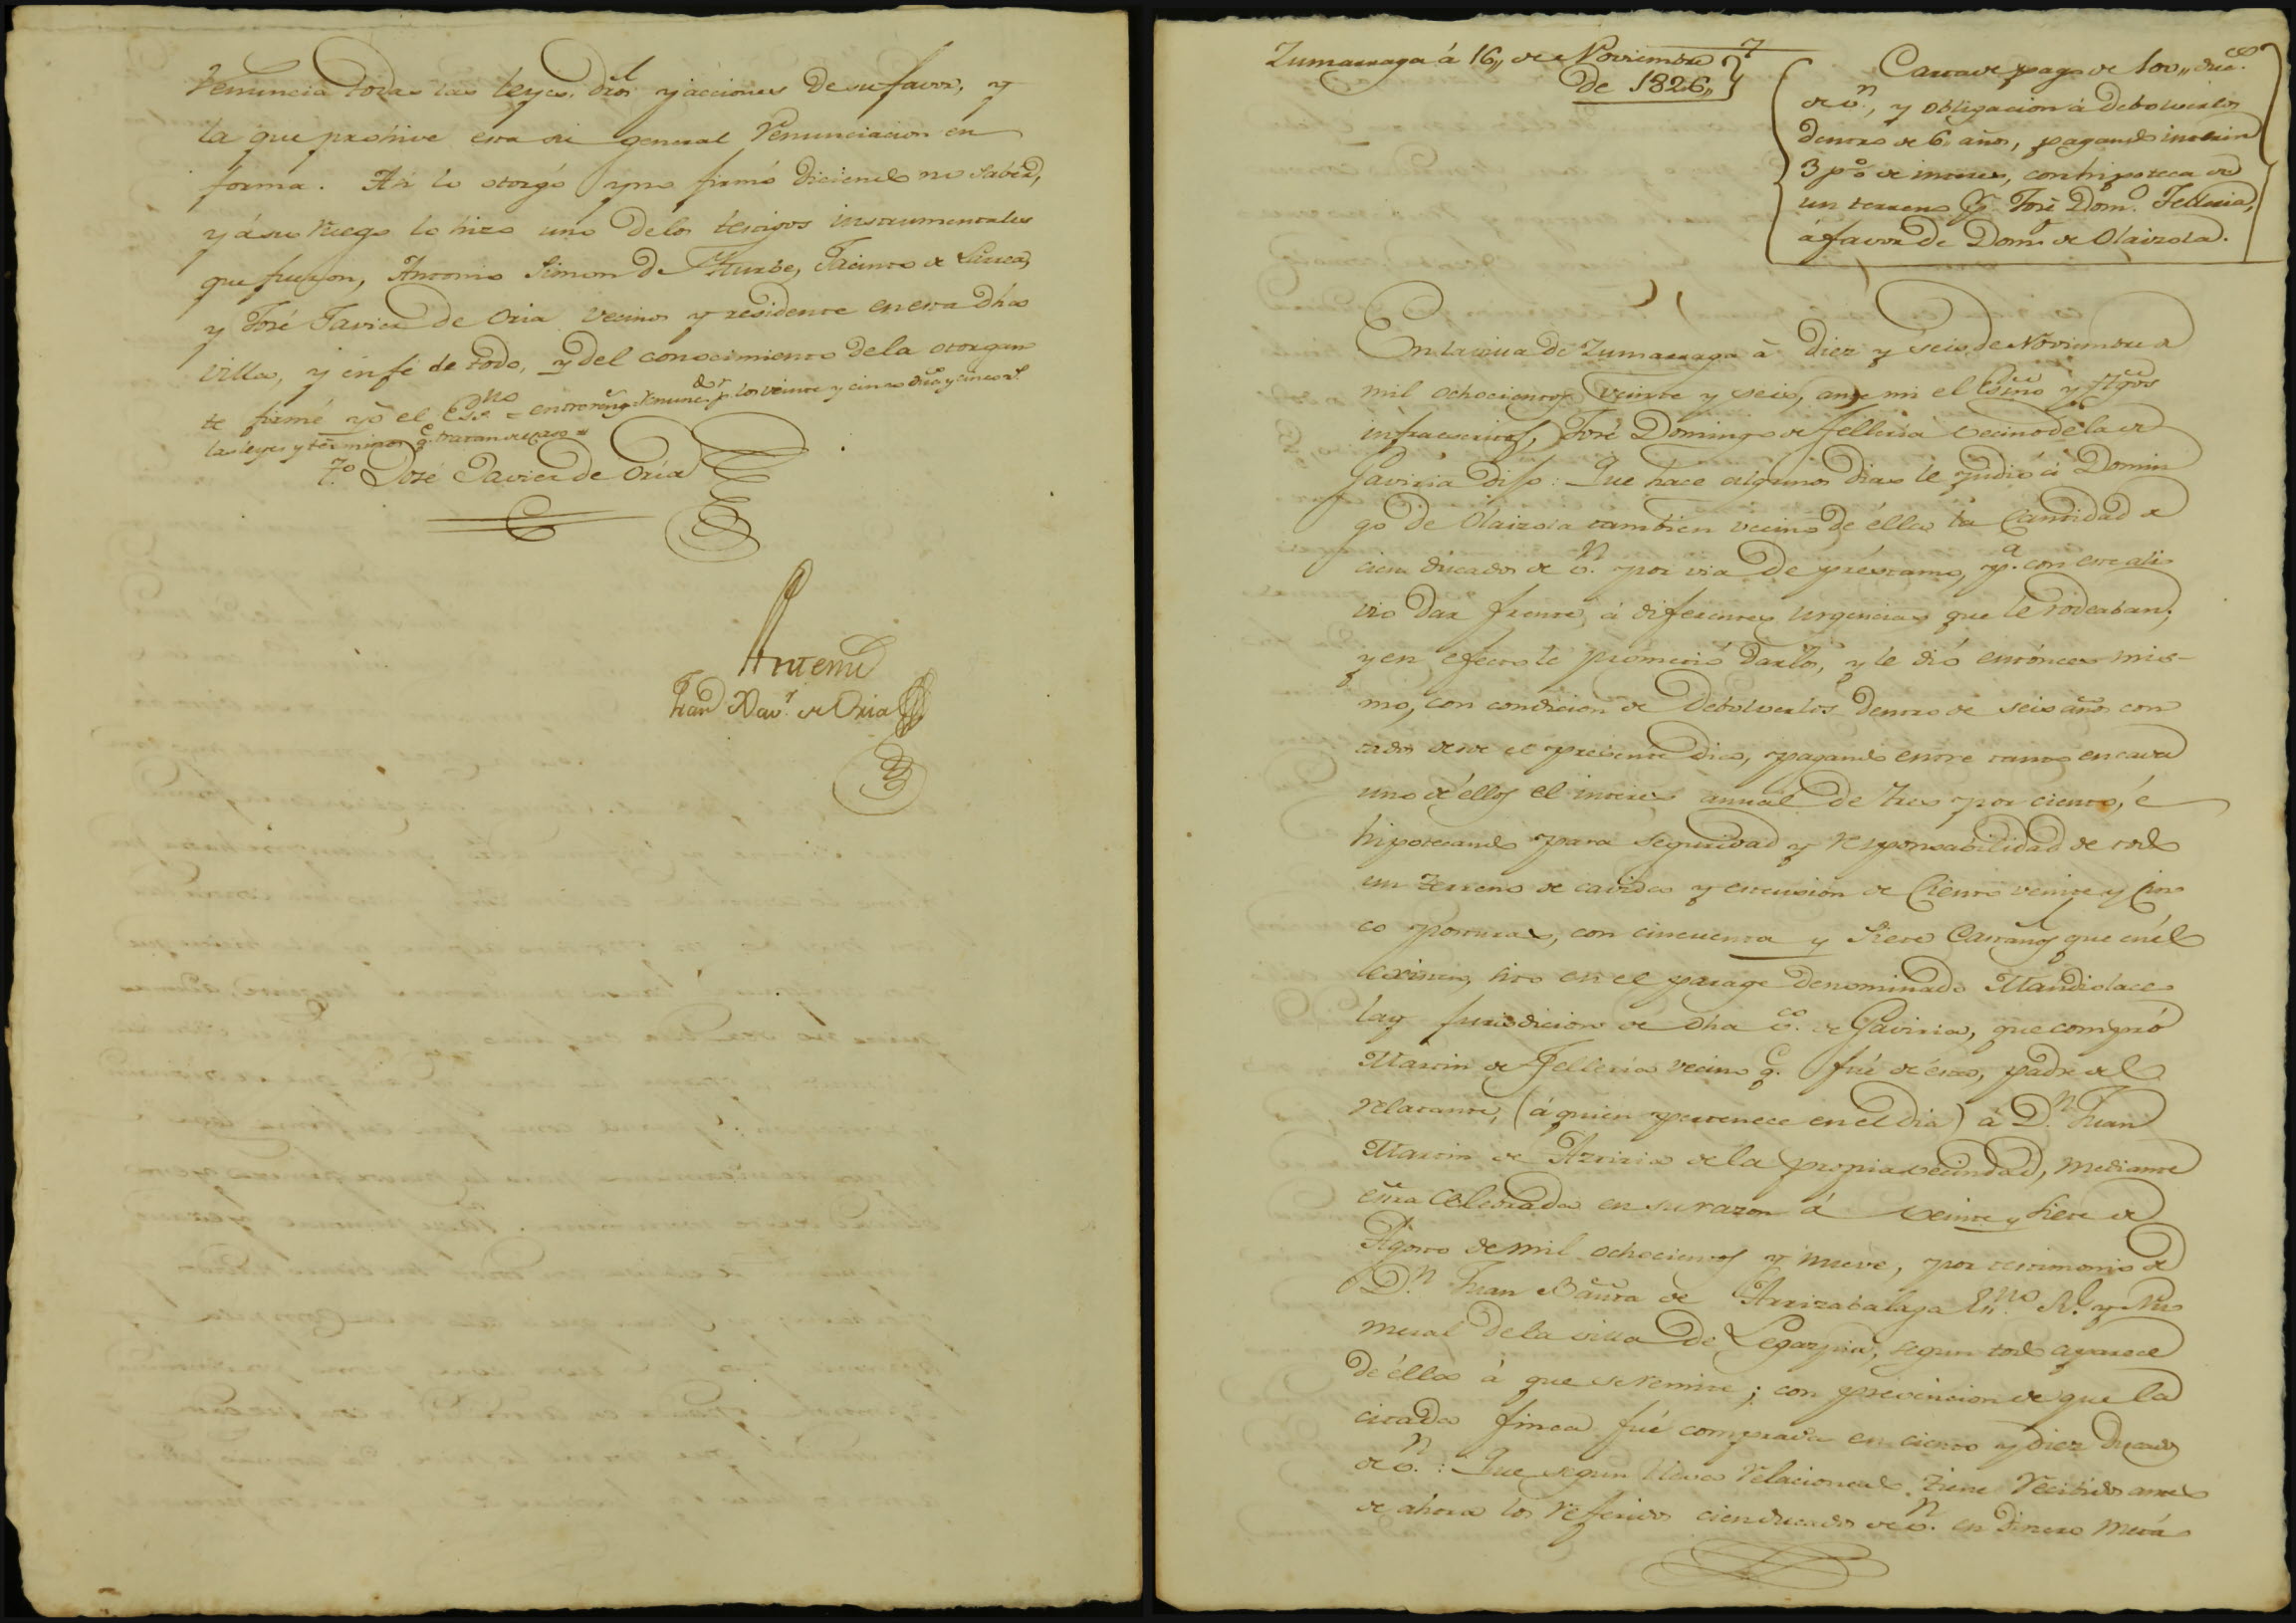 Renuncia todas las leyes, dros y acciones de su favor, y
la que prohive esta ó sú general Renunciacion en
forma. Asi lo otorgó y no firmó diciendo no saber,
y á su Ruego lo hizo uno de los testigos instrumentales
que fueron, Antonio Simon de Yturbe, Jacinto de Lizea,
y José Javier de Oria vecinos y residente en esta dha
villa, y en fé de todo, y del conocimiento de la otorgan
te firmé yó el Essno = entrereng. Renunc. dor p. los veinte y cinco dus. y cinco rs.
las leyes y terminos q. tratan de
To José Javier de Oria
Antemi
Fran Xavr. de Oria
Zumarraga á 16,, de Noviembre
De 1826,,
Carta de pago de 100,, ducs.
de vn., y obligacion á debolverlos
dentro de 6 años, pagando interin
3 p% de interes, con hipoteca de
un terreno Pr. José Domo. Telleria,
á favor de Domo. de Olaizola.
En la villa de Zumarraga á diez y seis de Noviembre de
mil ochocientos veinte y seis, ante mi el Essno y tgos
infraescritos, José Domingo de Telleria vecino de la de
Gaviria dijo: Que hace algunos dias le pidió á Domin
go de Olaizola tambien vecino de élla la Cantidad de
cien ducados de vn. por via de préstamo, pa. con este ali
vio dar frente á diferentes urgencias que le rodeaban,
y en efecto le prometió darlos, y le dió entónces mis-
mo, con condicion de debolverlos dentro de seis años con
tados desde el presente dia, pagando entre tanto en cada
uno de éllos el interes annual de tres por ciento, é
hipotecando para seguridad y responsabilidad de todo
un terreno de cavida y estension de Ciento veinte y Cin
co posturas, con cincuenta y Siete Castaños que en él
existen, sito en el parage denominado Mandiolace
lay jurisdicion de dha va. de Gaviria, que compró
Martin de Telleria vecino q. fué de ésta, padre del
relatante, (á quien pertenece en el dia) á Dn. Juan
Martin de Azpiria de la propia vecindad, mediante
essra celebrada en su razon á veinte y Siete de
Agosto de mil ochocientos y nueve, por testimonio de
Dn. Juan Bauta de Arrizabalaga Essno Rl. y Nu
meral de la villa de Legazpia, segun todo aparece
de élla á que se remite; con prevencion de que la
citada finca fué comprada en ciento y diez ducados
de vn.: Que segun lleva relacionado tiene recibidos antes
de ahora los referidos cien ducados de vn. en dinero metá